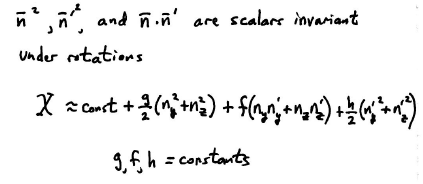 n̄², n̄'², and n̄·n̄' are scalars invariant
under rotations
χ ≈ const + g/2 (n_y² + n_z²) + f(n_y n_y' + n_z n_z') + h/2 (n_y'² + n_z'²)
g, f, h = constants